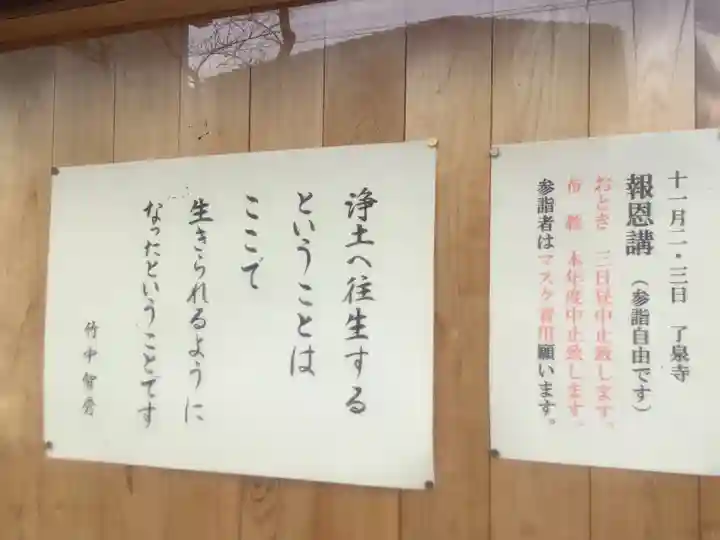 浄土へ往生する
ということは
ここで
生きられるように
なったということです
竹中智秀
十一月二・三日 了泉寺
報恩講(参詣自由です)
おとき 三日昼中止致します。
布教 本年度中止致します。
参詣者はマスク着用願います。